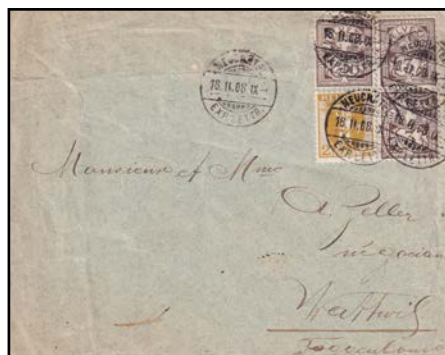 NEUCHÂTEL
18.II.08.IX
EXP. LETTR.
NEUCHÂTEL
18.II.08
Monsieur et Mme
A. Zeller
négociant
Wattwil
Toggenbourg